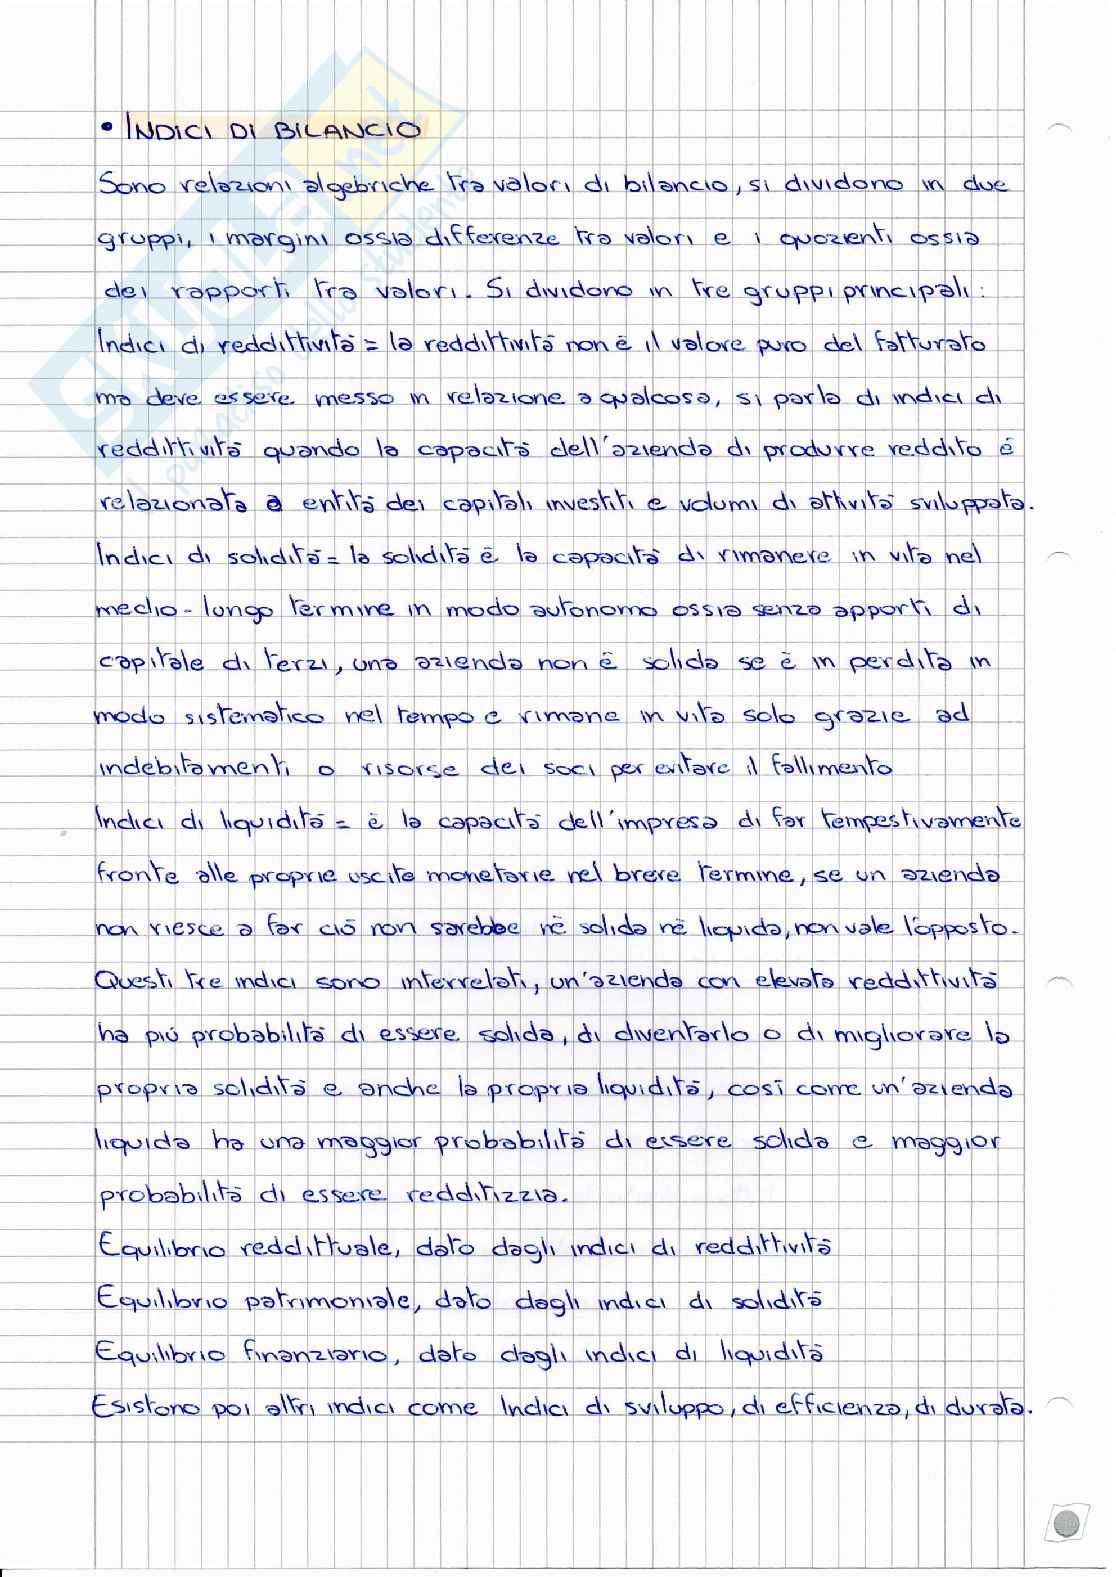 • INDICI DI BILANCIO
Sono relazioni algebriche tra valori di bilancio, si dividono in due
gruppi, i margini ossia differenze tra valori e i quozienti ossia
dei rapporti tra valori. Si dividono in tre gruppi principali:
Indici di reddittività = la reddittività non è il valore puro del fatturato
ma deve essere messo in relazione a qualcosa, si parla di indici di
reddittività quando la capacità dell'azienda di produrre reddito è
relazionata a entità dei capitali investiti e volumi di attività sviluppata.
Indici di solidità = la solidità è la capacità di rimanere in vita nel
medio-lungo termine in modo autonomo ossia senza apporti di
capitale di terzi, una azienda non è solida se è in perdita in
modo sistematico nel tempo e rimane in vita solo grazie ad
indebitamenti o risorse dei soci per evitare il fallimento
Indici di liquidità = è la capacità dell'impresa di far tempestivamente
fronte alle proprie uscite monetarie nel breve termine, se un azienda
non riesce a far ciò non sarebbe nè solida nè liquida, non vale l'opposto.
Questi tre indici sono interrelati, un'azienda con elevata reddittività
ha più probabilità di essere solida, di diventarlo o di migliorare la
propria solidità e anche la propria liquidità, così come un'azienda
liquida ha una maggior probabilità di essere solida e maggior
probabilità di essere redditizzia.
Equilibrio reddittuale, dato dagli indici di reddittività
Equilibrio patrimoniale, dato dagli indici di solidità
Equilibrio finanziario, dato dagli indici di liquidità
Esistono poi altri indici come Indici di sviluppo, di efficienza, di durata.